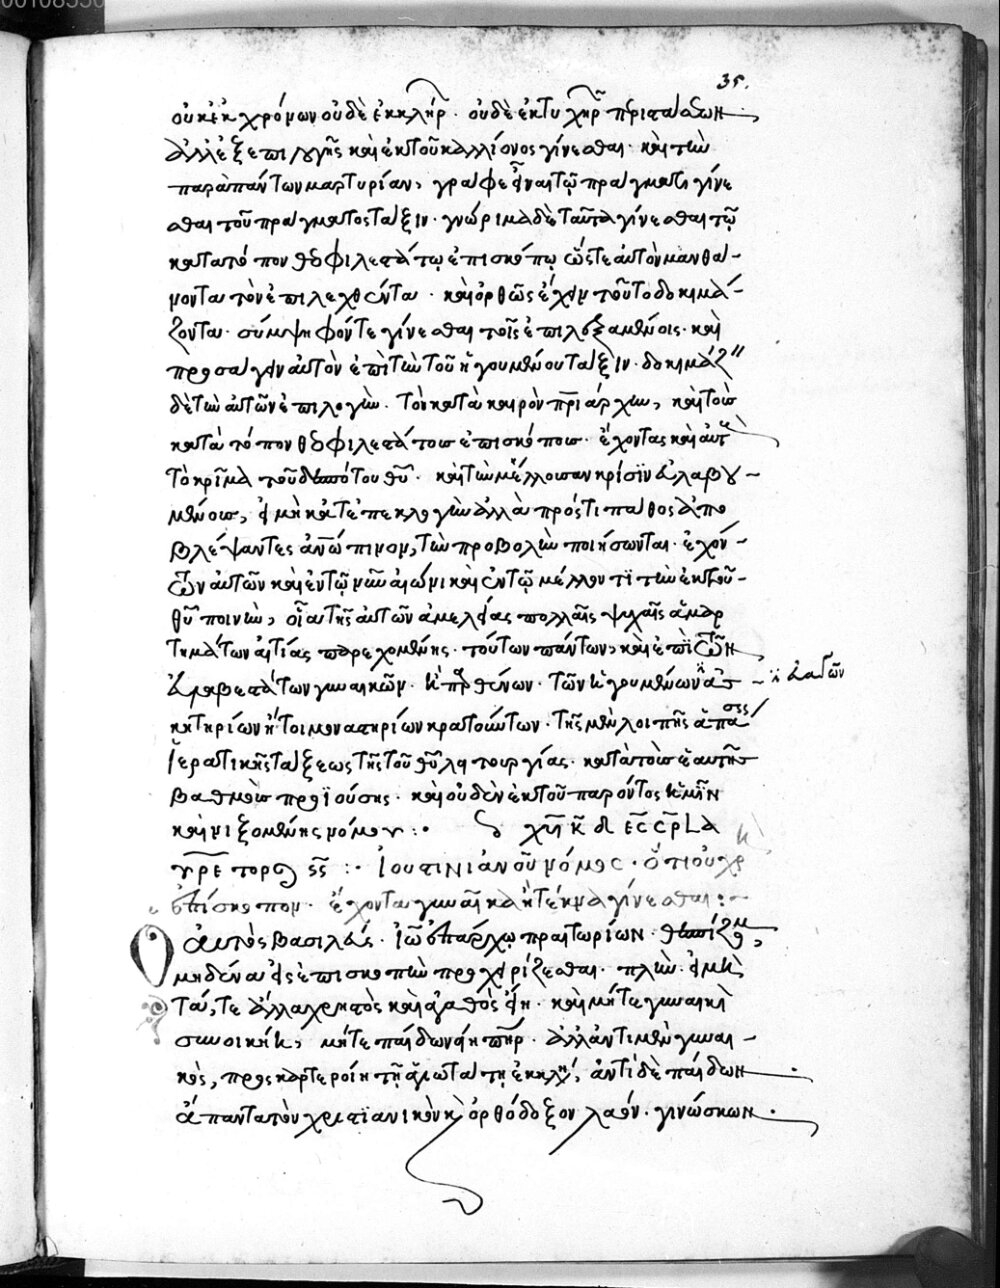 00108550
35.
οὐκ ἐκ χρόνων οὐδὲ ἐκκλήρ. οὐδὲ ἐκ τυχηρ περιπαιδων
ἀλλ' ἐξ ἐπιλογῆς καὶ ἐκ τοῦ καλλίονος γίνεσθαι· καὶ τὴν
παρὰ πάντων μαρτυρίαν, γίνε
σθαι τοῦ πράγματος τάξιν· γνώριμα δὲ ταῦτα γίνεσθαι τῷ
κατὰ τόπον θεοφιλεστάτῳ ἐπισκόπῳ ὥστε αὐτὸν μανθά-
νοντα τὸν ἐπιλεχθέντα· καὶ ὀρθῶς ἔχειν τοῦτο δοκιμά-
ζοντα· σύμψηφόν τε γίνεσθαι τοῖς ἐπιλεξαμένοις· καὶ
προσάγειν αὐτὸν ἐπὶ τὴν τοῦ ἡγουμένου τάξιν· δοκιμάζ
δὲ τὴν αὐτῶν ἐπιλογὴν· τὸν κατὰ καιρὸν πριάρχην, καὶ τοὺς
κατὰ τόπον θεοφιλεστάτους ἐπισκόπους· ἔχοντας καὶ αὐτ
τὸ κρῖμα τοῦ δεσπότου θυ· καὶ τὴν μέλλουσαν κρίσιν εὐλαβου-
μένους, εἰ μὴ κατ' ἐπεκλογὴν ἀλλὰ πρός τι πάθος ἀπο
βλέψαντες ἀνώπινον, τὴν προβολὴν ποιήσωνται· ἐχόν-
των αὐτῶν καὶ ἐν τῷ νῦν αἰῶνι καὶ ἐν τῷ μέλλοντι τὴν ἐκ τοῦ-
θυ ποινὴν, οἷα τῆς αὐτῶν ἀμελείας πολλαῖς ψυχαῖς ἁμαρ
τημάτων αἰτίας παρεχομένης· τούτων πάντων, καὶ ἐπὶ τῶν
εὐλαβεστάτων γυναικῶν· ἢ παρθένων· τῶν ἡγουμένων ἀσ- - ἢ εὐαγῶν
κητηρίων ἤτοι μοναστηρίων κρατούντων· τῆς μὲν λοιπῆς ἁπάσσ
ἱερατικῆς τάξεως τῆς τοῦ θυ λειτουργίας· κατὰ τοὺς ἑαυτῆς
βαθμοὺς προϊούσης· καὶ οὐδὲν ἐκ τοῦ παρόντος ἡμῖν
καινιζομένης νόμου :·
Ἰουστινιανοῦ νόμος· ὅτι οὐ χρὴ
ἐπίσκοπον· ἔχοντα γυναῖκα ἢ τέκνα γίνεσθαι :-
Ὁ αὐτὸς βασιλεύς· Ἰω ἐπάρχῳ πραιτωρίων· θεσπίζομ,
μηδένα εἰς ἐπισκοπὴν προχειρίζεσθαι· πλὴν· εἰ μὴ
τά, τε ἄλλα χρηστὸς καὶ ἀγαθὸς εἴη· καὶ μήτε γυναικὶ
συνοικοίη, μήτε παίδων εἴη πηρ· ἀλλ' ἀντὶ μὲν γυναι-
κὸς, προσκαρτεροίη τῇ ἁγιωτάτῃ ἐκκλη, ἀντὶ δὲ παίδων
ἅπαντα τὸν χριστιανικὸν κ ὀρθόδοξον λαόν· γινώσκων·